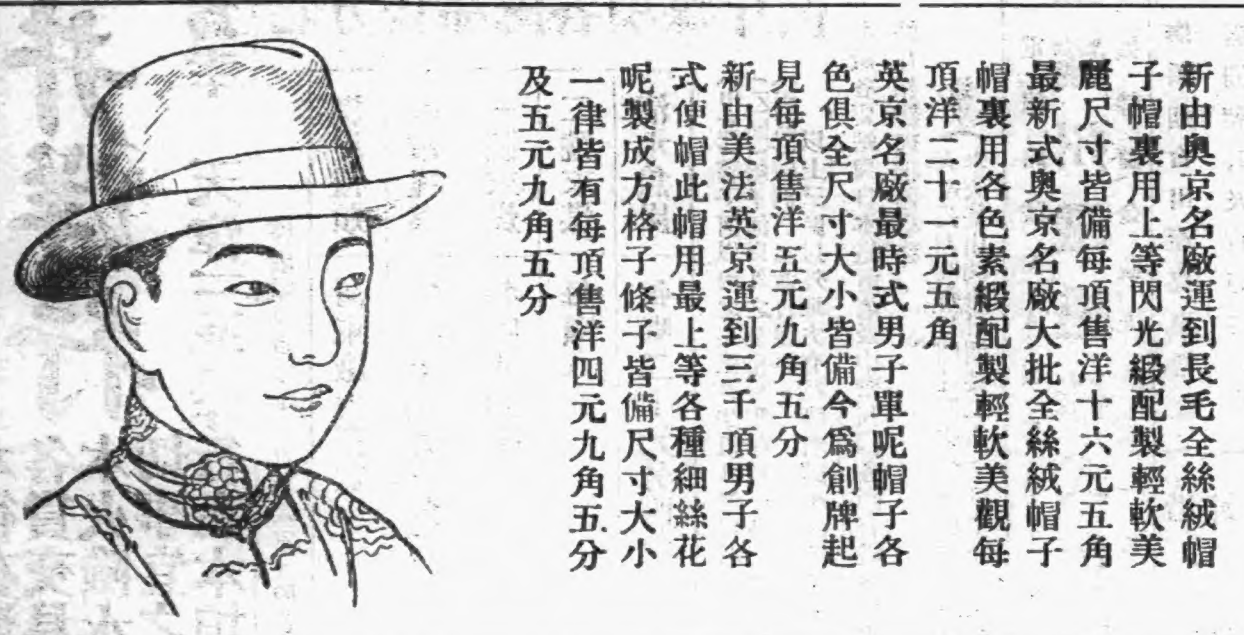 新由奧京名廠運到長毛全絲絨帽
子帽裏用上等閃光緞配製輕軟美
麗尺寸皆備每頂售洋十六元五角
最新式奧京名廠大批全絲絨帽子
帽裏用各色素緞配製輕軟美觀每
頂洋二十一元五角
英京名廠最時式男子單呢帽子各
色俱全尺寸大小皆備今爲創牌起
見每頂售洋五元九角五分
新由美法英京運到三千頂男子各
式使帽此帽用最上等各種細絲花
呢製成方格子條子皆備尺寸大小
一律皆有每頂售洋四元九角五分
及五元九角五分